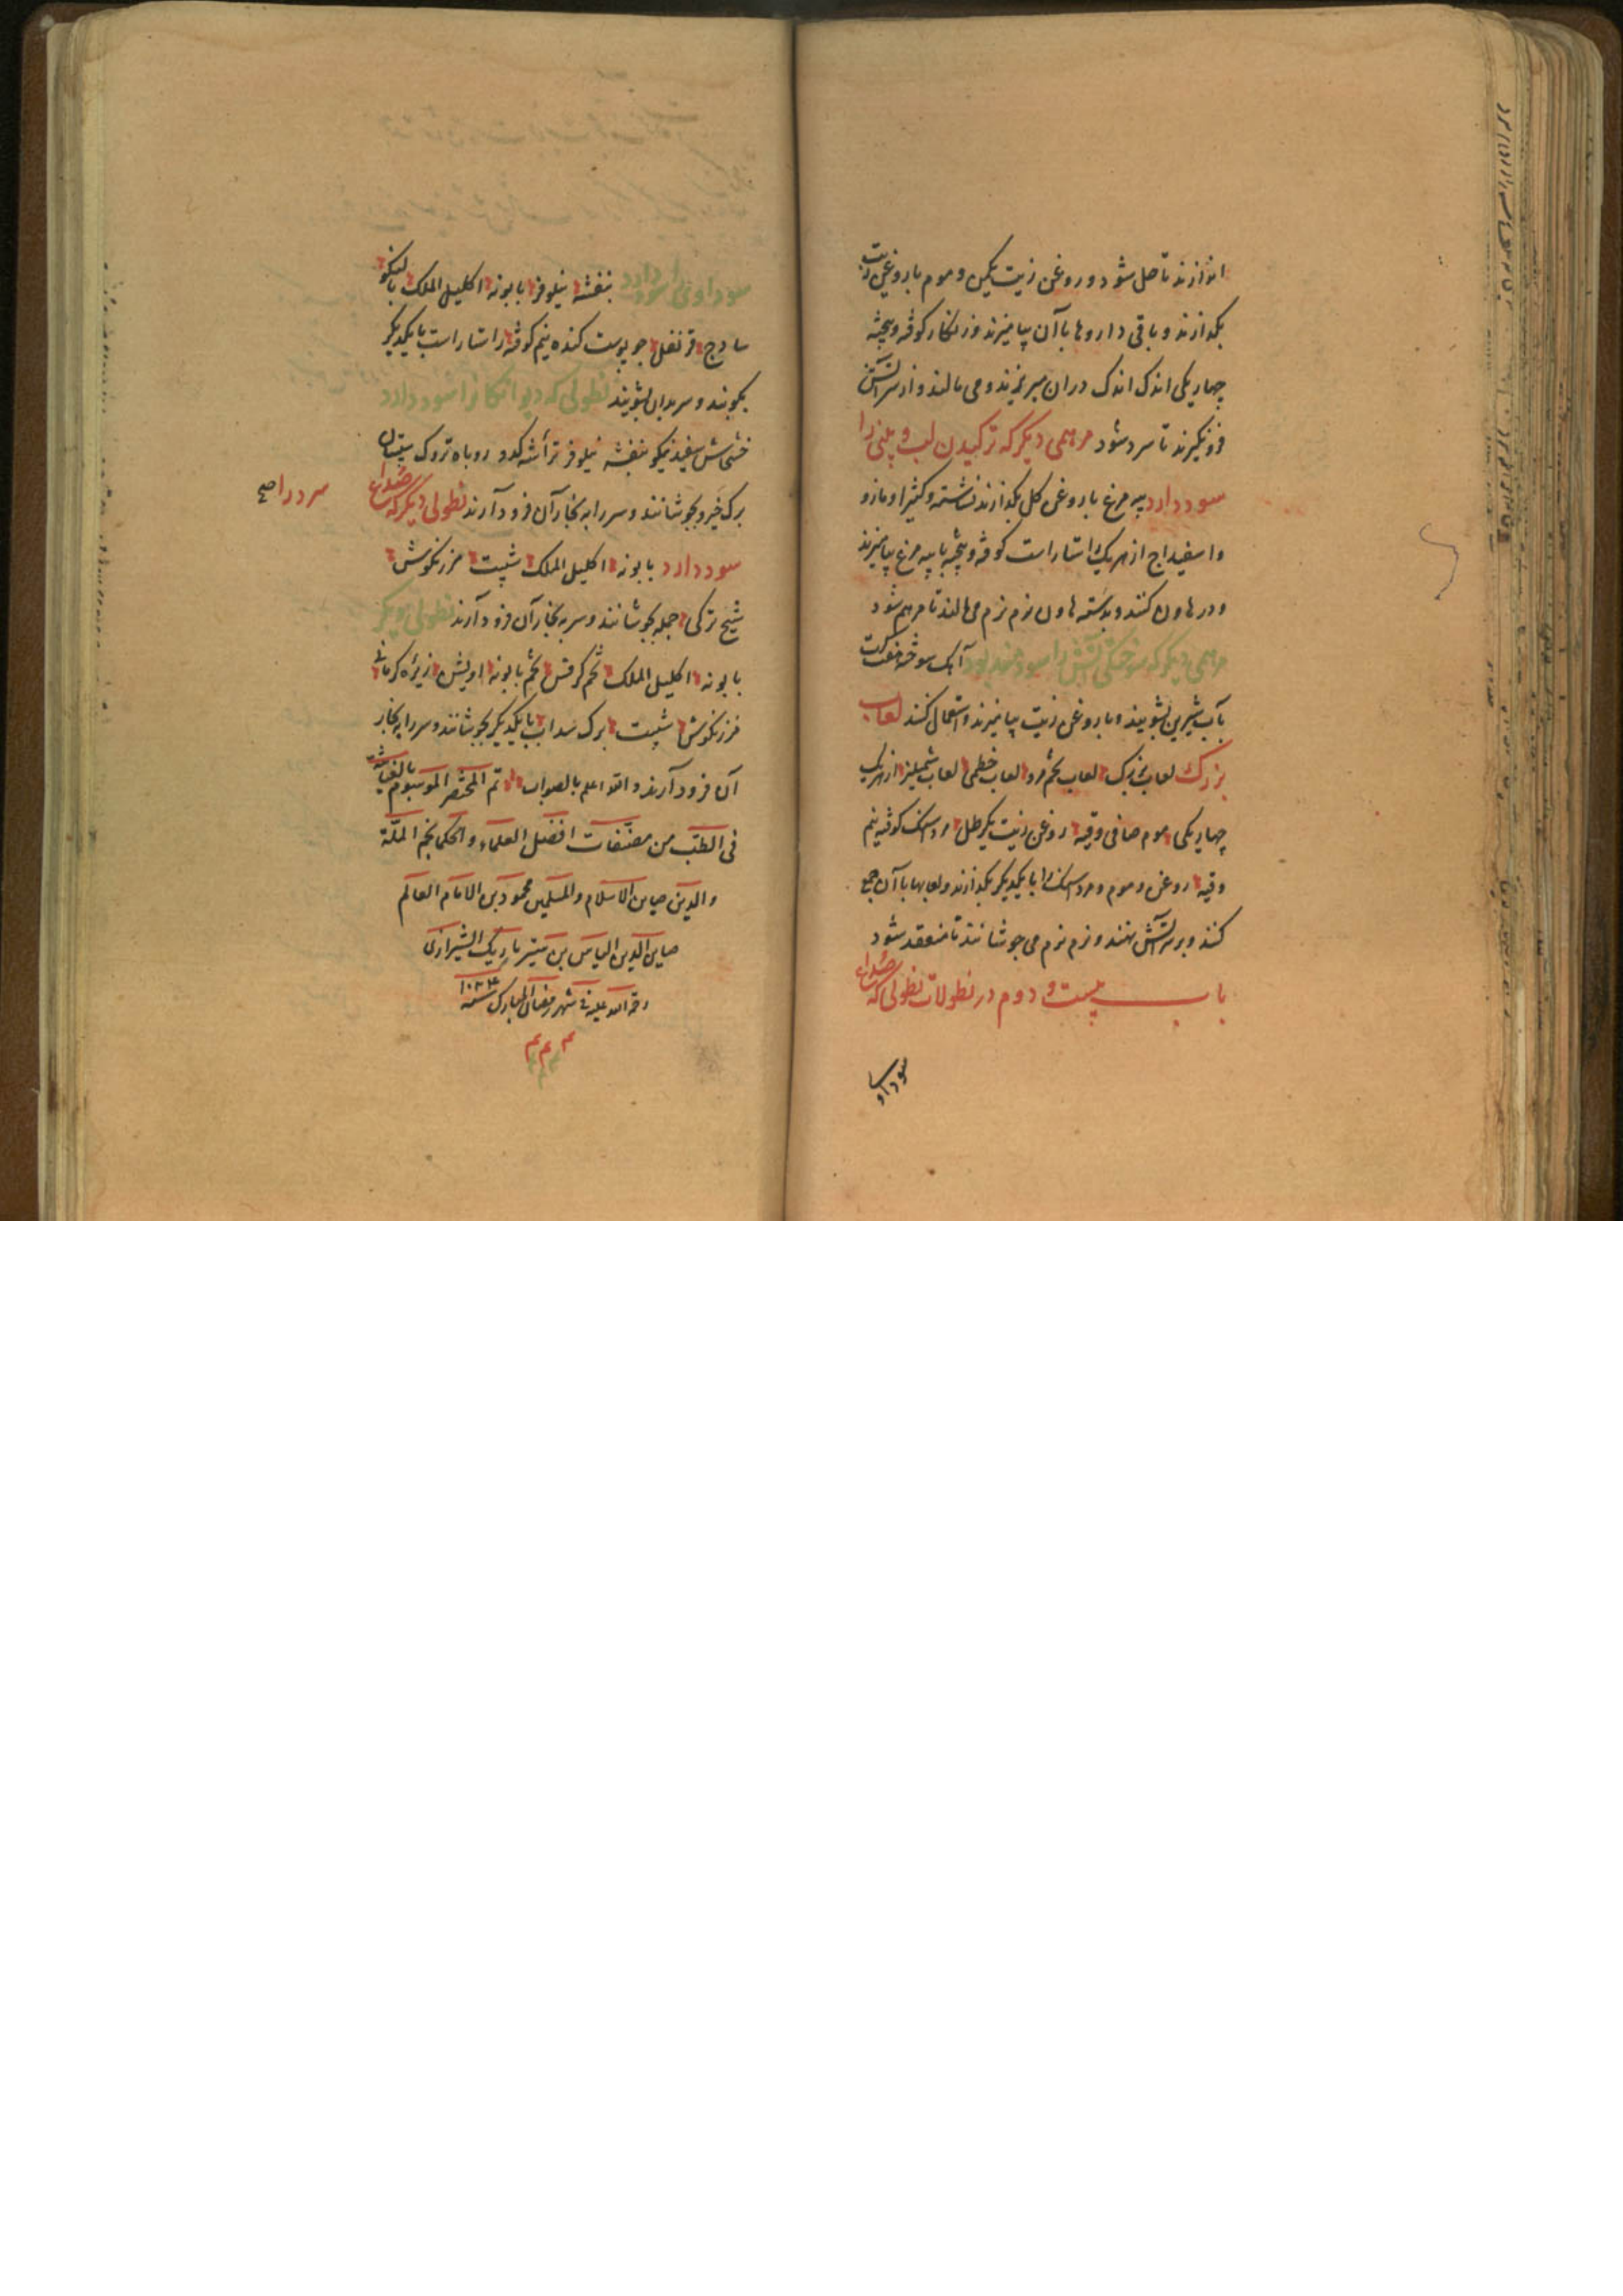 اندازند تا حل شود و روغن زیت یکمن و موم با روغن زیت
بکدازند و باقی داروها با آن بیامیزند و زنکار کوفته و بیخته
چهار یکی اندک اندک دران میریزند و می مالند و از سر آتش
فرو کیرند تا سرد شود مرهمی دیکر که ترکیدن لب و بینی را
سود دارد پیه مرغ با روغن کل بکدازند نشاسته و کثیرا و مازو
و اسفیداج از هریک راستاراست کوفته و بیخته با پیه مرغ بیامیزند
و در هاون کنند و بدسته هاون نرم نرم می مالند تا مرهم شود
مرهمی دیکر که سوختکی آتش را سودمند بود آهک سوخته هفت کرت
بآب شیرین بشویند و با روغن زیت بیامیزند و استعمال کنند لعاب
بزرک لعاب بزرک لعاب تخم مرو لعاب خطمی لعاب شملیز از هریک
چهار یکی موم صافی وقیه روغن زیت یکرطل مرداسنک کوفته نیم
وقیه روغن و موم و مرداسنک را با یکدیکر بکدازند و لعابها با آن جمع
کنند و بر سر آتش نهند و نرم نرم می جوشانند تا منعقد شود
باب بیست و دوم در نطولات نطولی که صداع
سوداو
سوداوی را سود دارد بنفشه نیلوفر بابونه اکلیل الملک بالنکو
سادج قرنفل جو پوست کنده نیم کوفته راستاراست با یکدیکر
بکوبند و سر بدان بشویند نطولی که دیوانکان را سود دارد
خشخاش سفید نیکو بنفشه نیلوفر تراشه کدو روباه تروک سپستان
برک خیرو بجوشانند و سر را به بخار آن فرود آرند نطولی دیکر که صداع
سرد را صح
سود دارد بابونه اکلیل الملک شبت مرزنکوش
شیح ترکی جمله بجوشانند و سر به بخار آن فرود آرند نطولی دیکر
بابونه اکلیل الملک تخم کرفس تخم بابونه اویشن زیره کرمانی
مرزنکوش شبت برک سداب با یکدیکر بجوشانند و سر را به بخار
آن فرود آرند والله اعلم بالصواب تم المختصر الموسوم بالغیاثیه
فی الطب من مصنفات افضل العلماء و الحکما نجم الملة
والدین صاین الاسلام والمسلمین محمود بن الامام العالم
صاین الدین الیاس بن الشیرازی
رحمة الله علیه فی شهر رمضان المبارک سنه
م م م